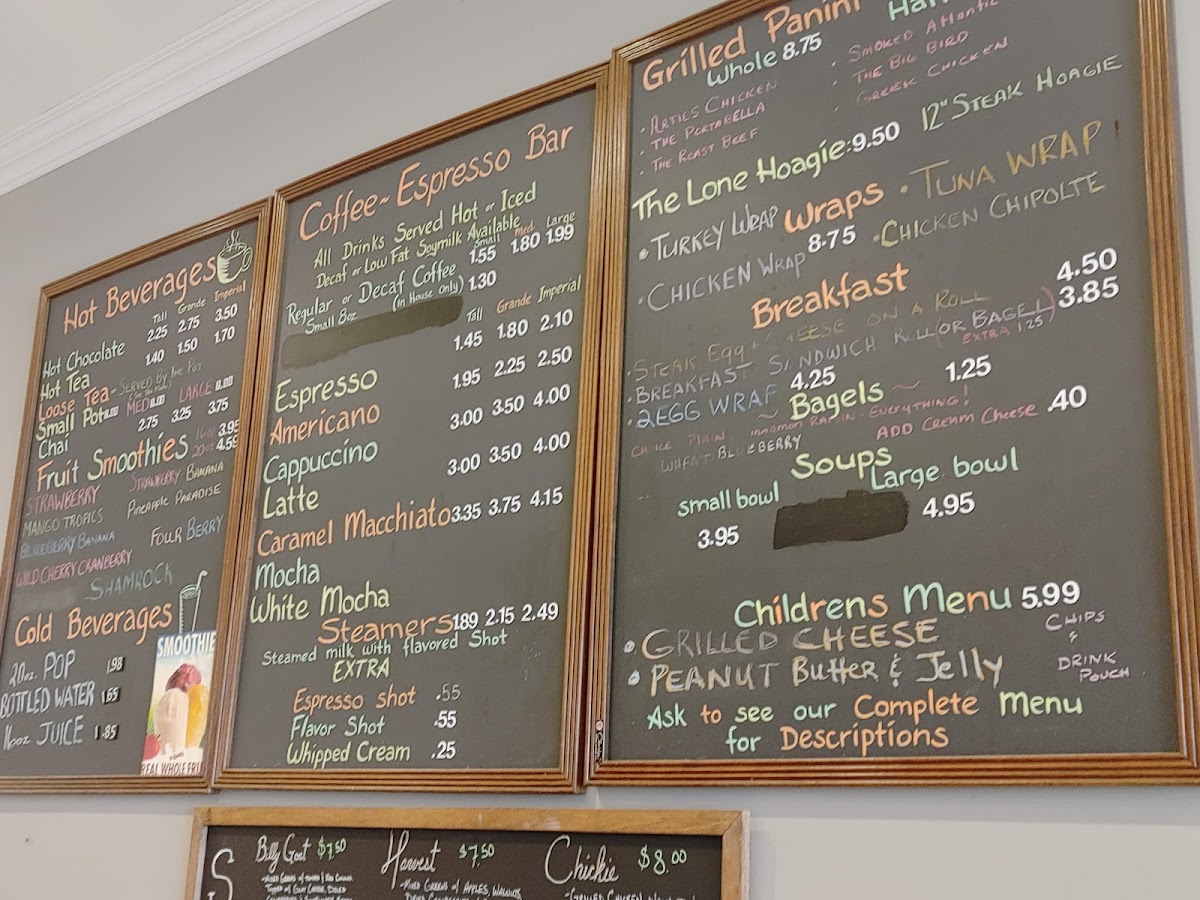 Hot Beverages
Tall Grande Imperial
Hot Chocolate 2.25 2.75 3.50
Hot Tea 1.40 1.50 1.70
Loose Tea - Served By The Pot
Small Pot MED LARGE
Chai 2.75 3.25 3.75
Fruit Smoothies 16oz 3.95
20oz 4.59
STRAWBERRY STRAWBERRY BANANA
MANGO TROPICS PINEAPPLE PARADISE
BLUEBERRY BANANA FOUR BERRY
WILD CHERRY CRANBERRY
SHAMROCK
Cold Beverages
20oz. POP 1.98
BOTTLED WATER 1.65
16oz JUICE 1.85
SMOOTHIE
REAL WHOLE
Coffee~Espresso Bar
All Drinks Served Hot or Iced
Decaf or Low Fat Soymilk Available
Small med Large
Regular or Decaf Coffee 1.55 1.80 1.99
Small 8oz (In House Only) 1.30
Tall Grande Imperial
Espresso 1.45 1.80 2.10
Americano 1.95 2.25 2.50
Cappuccino 3.00 3.50 4.00
Latte 3.00 3.50 4.00
Caramel Macchiato 3.35 3.75 4.15
Mocha
White Mocha
Steamers 1.89 2.15 2.49
Steamed milk with flavored Shot
EXTRA
Espresso shot .55
Flavor Shot .55
Whipped Cream .25
Grilled Panini
Whole 8.75
• ARTIES CHICKEN • SMOKED ATLANTIC
• THE PORTABELLA • THE BIG BIRD
• THE ROAST BEEF • GREEK CHICKEN
The Lone Hoagie: 9.50 12" STEAK HOAGIE
• TURKEY WRAP Wraps • TUNA WRAP
• CHICKEN WRAP 8.75 • CHICKEN CHIPOLTE
Breakfast
• STEAK Egg + CHEESE ON A ROLL 4.50
• BREAKFAST SANDWICH ROLL (OR BAGEL) 3.85
EXTRA 1.25
• 2 EGG WRAP 4.25
~ Bagels ~ 1.25
PLAIN, Cinnamon RAISIN - EVERYTHING!
WHEAT, BLUEBERRY ADD Cream Cheese .40
Soups
small bowl Large bowl
3.95 4.95
Childrens Menu 5.99
• GRILLED CHEESE CHIPS
&
• PEANUT Butter & Jelly DRINK
POUCH
Ask to see our Complete Menu
for Descriptions
Billy Goat $7.50 Harvest $7.50 Chickie $8.00